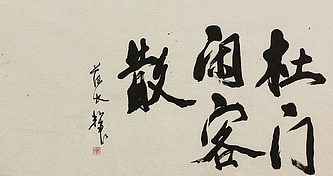 杜门
闲客
散